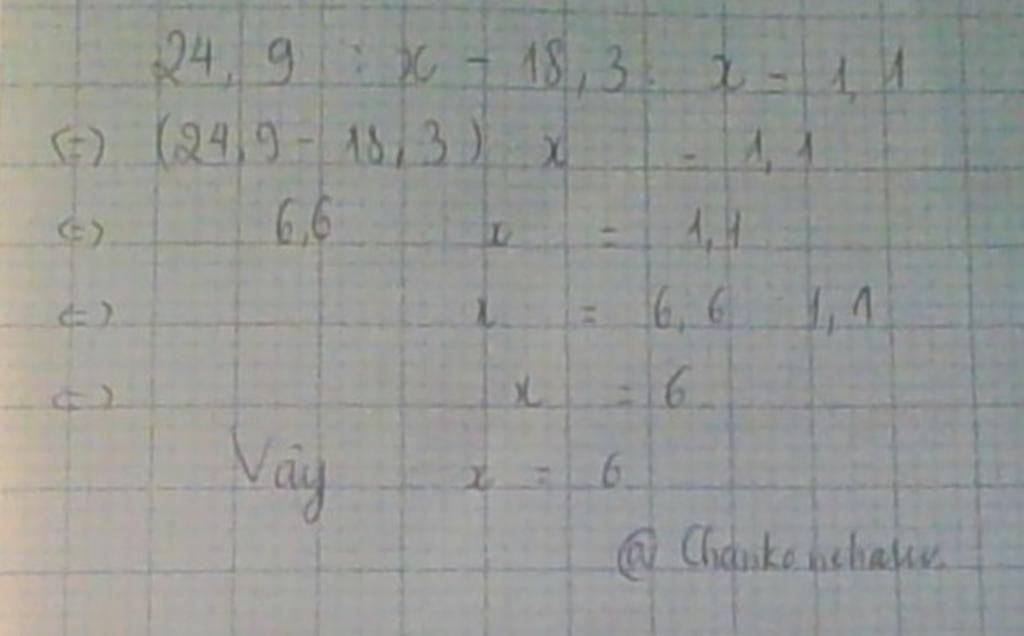 24,9 : x - 18,3 : x = 1,1
(=) (24,9 - 18,3) x = 1,1
(=) 6,6 x = 1,1
(=) x = 6,6 1,1
(=) x = 6
Vậy x = 6
@